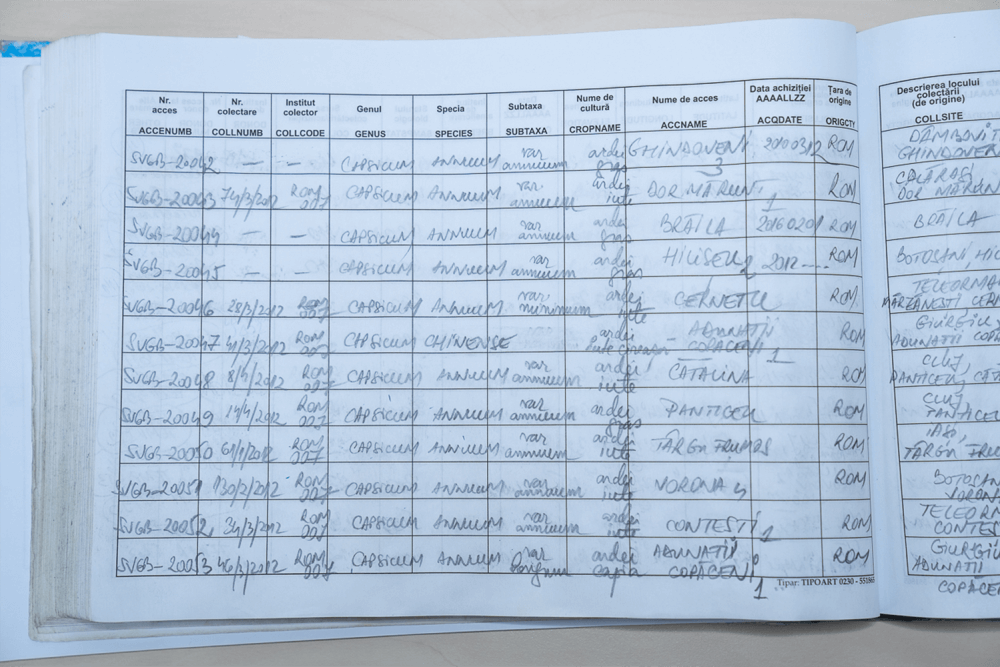 Nr. acces Nr. colectare Institut colector Genul Specia Subtaxa Nume de cultură Nume de acces Data achiziției AAAALLZZ Țara de origine Descrierea locului colectării (de origine)
ACCENUMB COLLNUMB COLLCODE GENUS SPECIES SUBTAXA CROPNAME ACCNAME ACQDATE ORIGCTY COLLSITE
SVGB-20042 — — CAPSICUM ANNUUM var annuum ardei gras GHINDOVENI 3 ROM DÂMBOVIȚ GHINDOVEN
SVGB-20043 74/3/2012 ROM 007 CAPSICUM ANNUUM var annuum ardei iute DOR MĂRUNT 1 ROM CĂLĂRAȘI DOR MĂRUN
SVGB-20044 — — CAPSICUM ANNUUM var annuum ardei gras BRĂILA 20160201 ROM BRĂILA
SVGB-20045 — — CAPSICUM ANNUUM var annuum ardei gras HILISEU 2 2012---- ROM BOTOȘANI HIL
SVGB-20046 28/3/2012 ROM 007 CAPSICUM ANNUUM var minimum ardei iute CERNETU ROM TELEORMA MÂRZĂNEȘTI CER
SVGB-20047 4/3/2012 ROM 007 CAPSICUM CHINENSE ardei iute ADUNAȚII COPĂCENI 1 ROM GIURGIU ADUNATII COPĂ
SVGB-20048 8/4/2012 ROM 007 CAPSICUM ANNUUM var annuum ardei iute CĂTĂLINA ROM CLUJ, PANTICEU CĂT
SVGB-20049 14/4/2012 ROM 007 CAPSICUM ANNUUM var annuum ardei gras PANTICEU ROM CLUJ PANTICE
SVGB-20050 ROM 007 CAPSICUM ANNUUM var annuum ardei iute TÂRGU FRUMOS ROM IAȘI, TÂRGU FRU
SVGB-20051 130/3/2012 ROM 007 CAPSICUM ANNUUM var annuum ardei iute VORONA 4 ROM BOTOȘA VORON
SVGB-20052 34/3/2012 ROM 007 CAPSICUM ANNUUM var annuum ardei iute CONTEȘTI 1 ROM TELEOR CONTEȘ
SVGB-20053 46/3/2012 ROM 007 CAPSICUM ANNUUM var longum ardei capia ADUNAȚII COPĂCENI 1 ROM GIURGIU ADUNATII COPĂCE
Tipar: TIPOART 0230 -